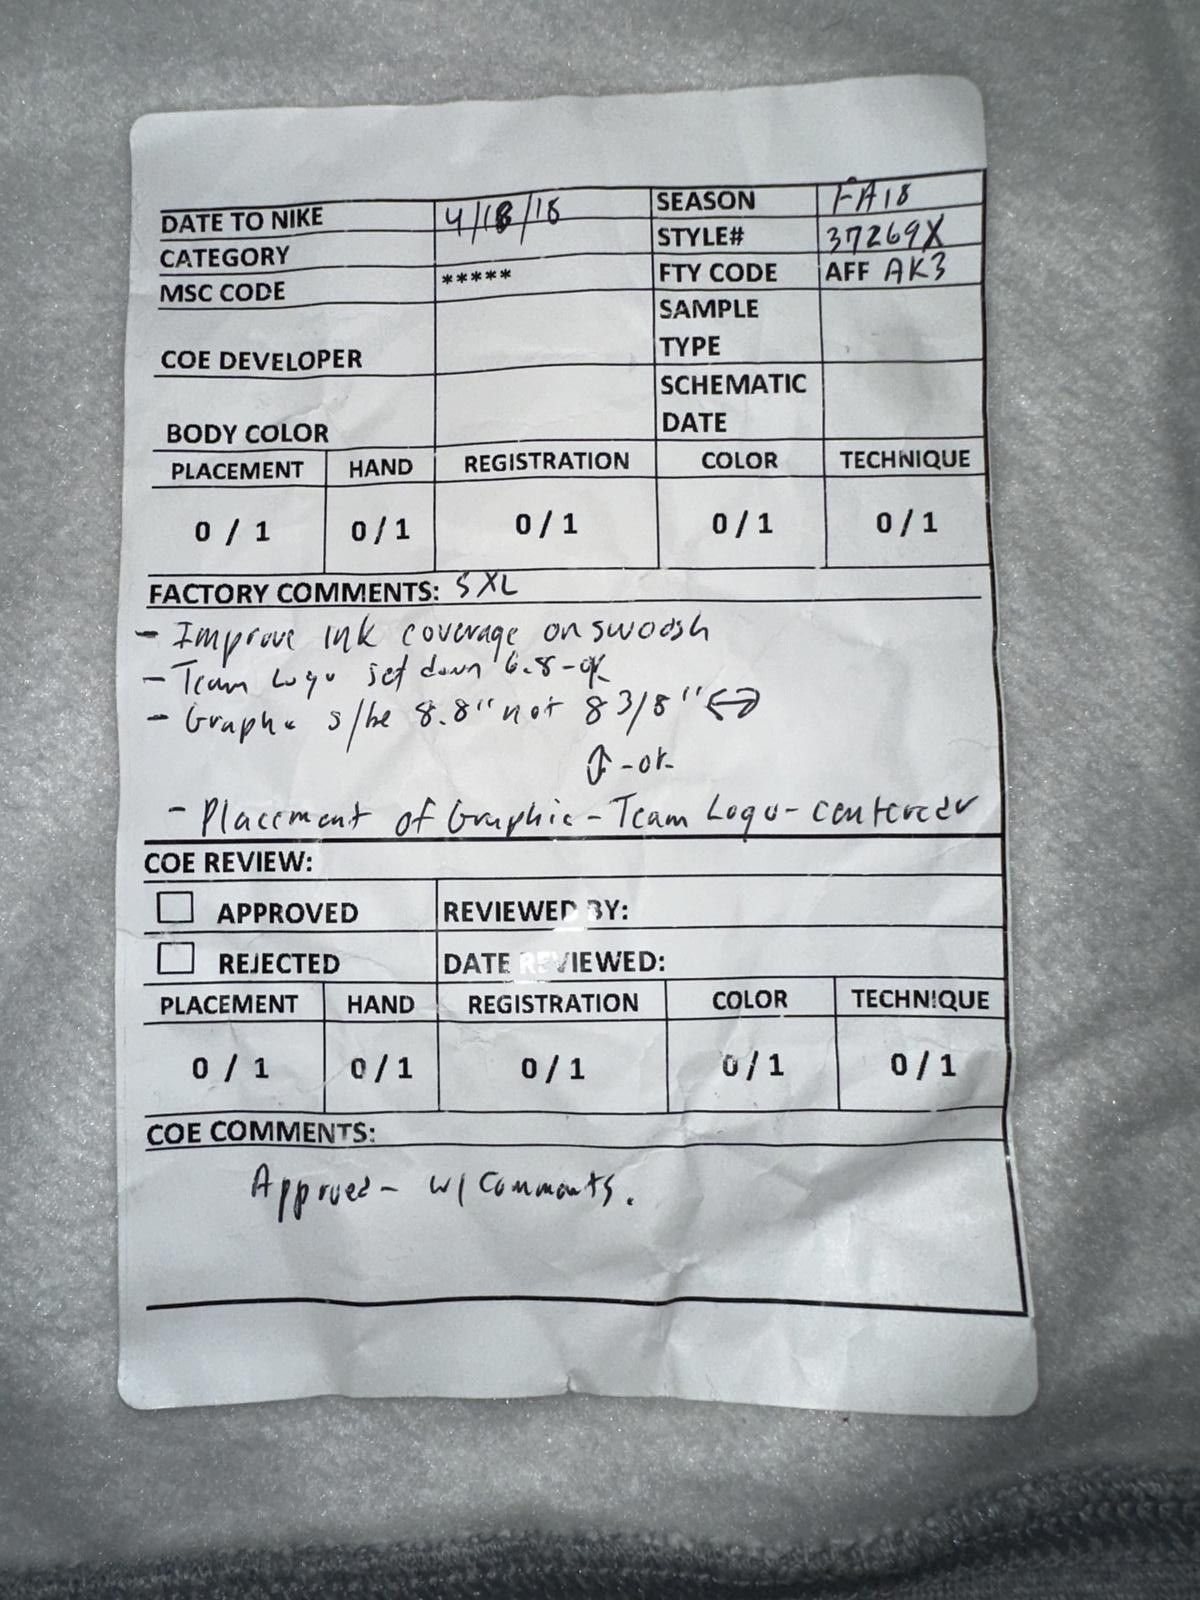 DATE TO NIKE 4/18/18 SEASON FA18
CATEGORY STYLE# 37269X
MSC CODE ***** FTY CODE AFF AK3
COE DEVELOPER SAMPLE TYPE
BODY COLOR SCHEMATIC DATE
PLACEMENT HAND REGISTRATION COLOR TECHNIQUE
0 / 1 0/1 0/1 0/1 0/1
FACTORY COMMENTS: SXL
- Improve ink coverage on swoosh
- Team Logo set down 6.8-ok
- Graphic s/be 8.8" not 8 3/8" ↔
↕-ok
- Placement of Graphic - Team Logo - centered
COE REVIEW:
APPROVED REVIEWED BY:
REJECTED DATE REVIEWED:
PLACEMENT HAND REGISTRATION COLOR TECHNIQUE
0 / 1 0/1 0/1 0/1 0/1
COE COMMENTS:
Approved - w/ Comments.